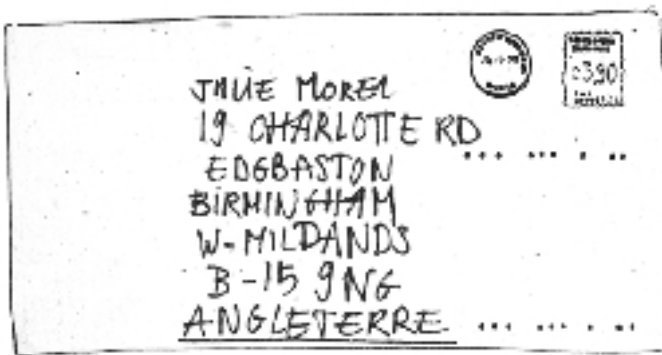 JULIE MOREL
19 CHARLOTTE RD
EDGBASTON
BIRMINGHAM
W-MILDANDS
B-15 9NG
ANGLETERRE
0390